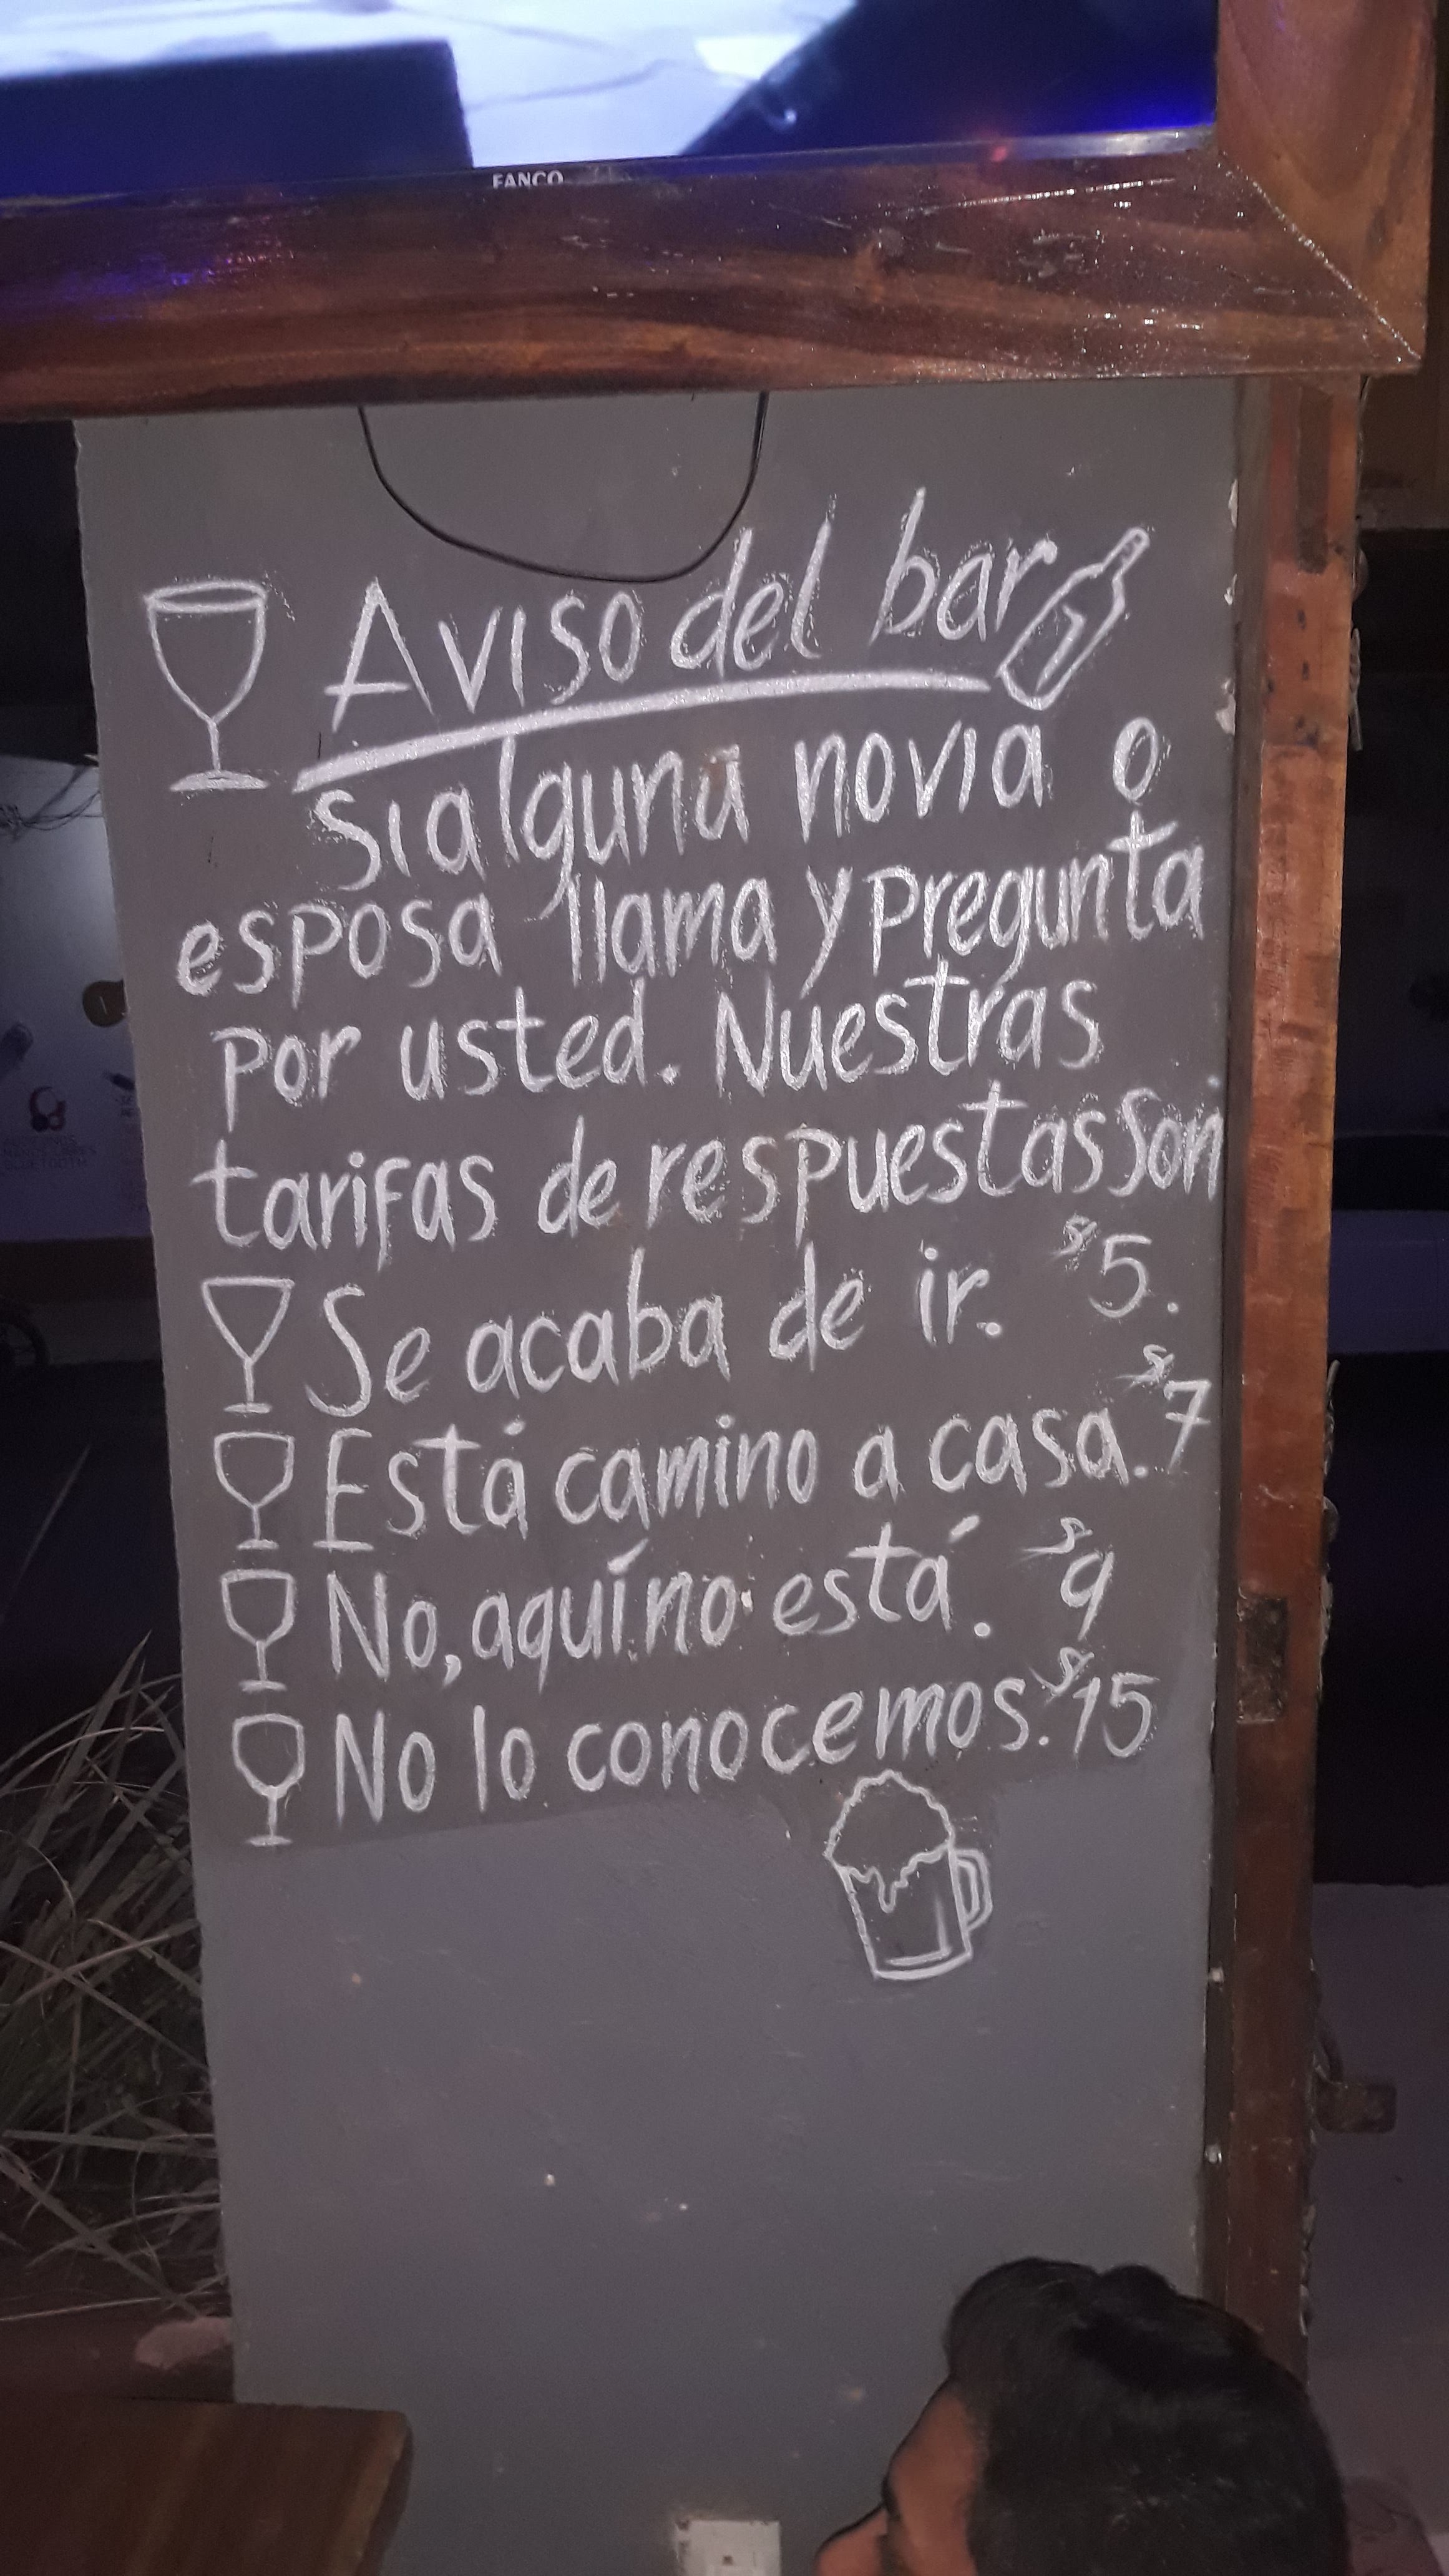 FANCO
Aviso del bar
Si alguna novia o
esposa llama y pregunta
por usted. Nuestras
tarifas de respuestas son
Se acaba de ir. $5.
Está camino a casa. $7
No, aquí no está. $9
No lo conocemos. $15